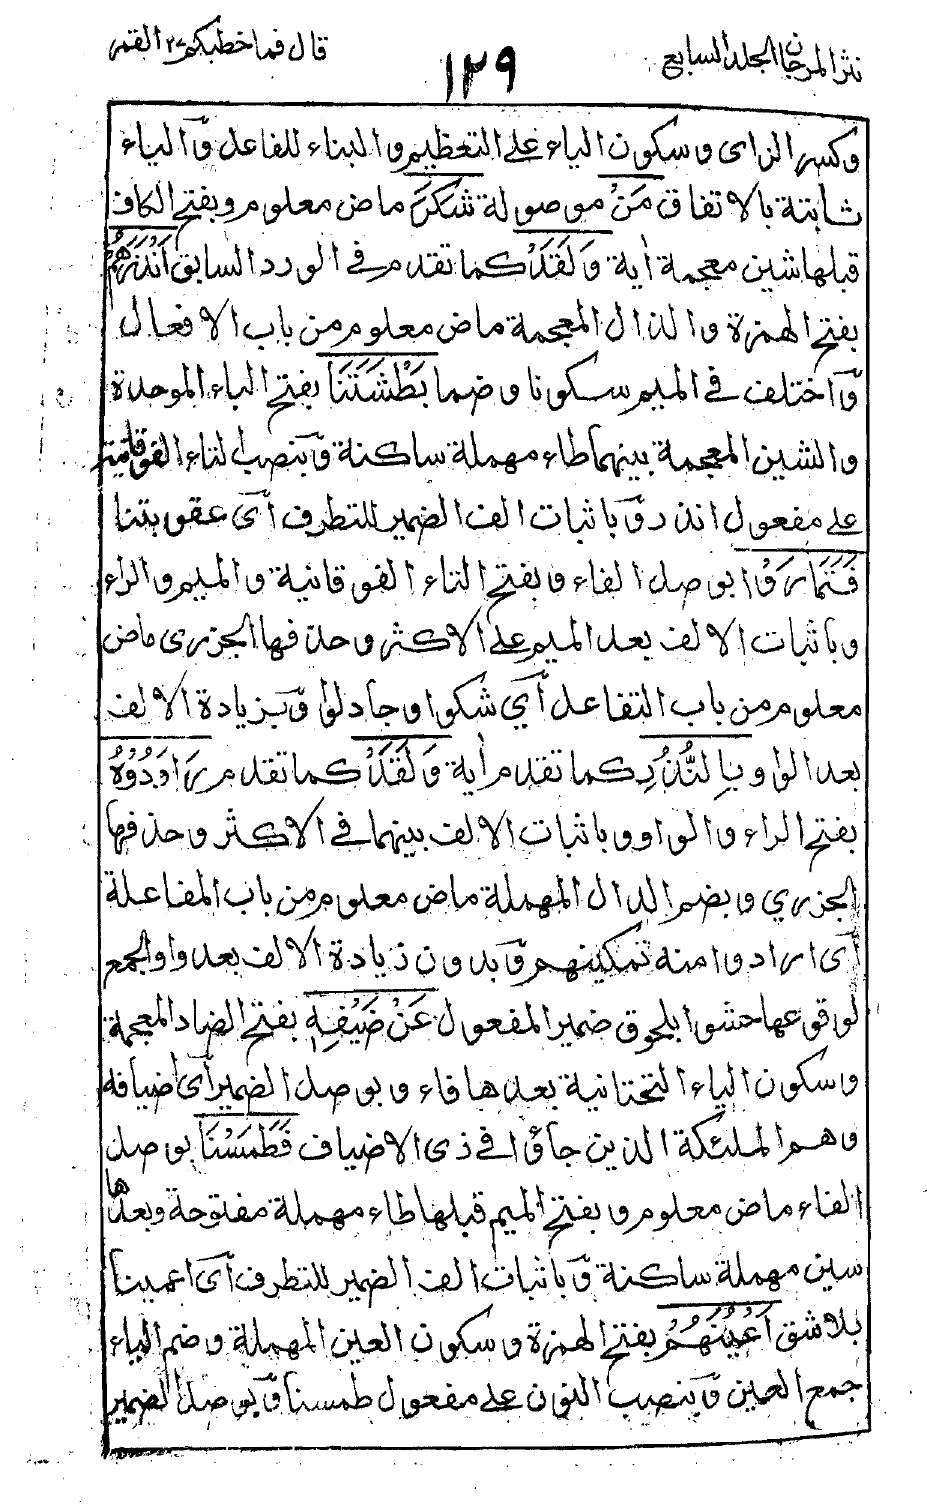 نثر المرجان الجلد السابع
١٢٩
قال فما خطبكم ٢٧ القمر
وكسر الزاى وسكون الياء على التعظيم والبناء للفاعل وَالياء
ثابتة بالاتفاق مَنْ موصولة شَكَرَ ماض معلوم وبفتح الكاف
قبلها شين معجمة اٰية وَلَقَدْ كما تقدم فى الورد السابق اَنْذَرَهُمْ
بفتح الهمزة والذال المعجمة ماض معلوم من باب الافعال
وَاختلف فى الميم سكونا وضما بَطْشَتَنَا بفتح الباء الموحدة
والشين المعجمة بينهما طاء مهملة ساكنة وَبنصب التاء الفوقانية
على مفعول انذر وَباثبات الف الضمير للتطرف اَى عقوبتنا
فَتَمَارَوْا بوصل الفاء وبفتح التاء الفوقانية والميم والراء
وباثبات الالف بعد الميم على الاكثر وحذفها الجزرى ماض
معلوم من باب التفاعل اَي شكوا وجادلوا وَبزيادة الالف
بعد الواو بِالنُّذُرِ كما تقدم اٰية وَلَقَدْ كما تقدم رَاوَدُوْهُ
بفتح الراء والواو وباثبات الالف بينهما فى الاكثر وحذفها
الجزري وبضم الدال المهملة ماض معلوم من باب المفاعلة
اَى ارادوا منه تمكينهم وَبدون زيادة الالف بعد واو الجمع
لوقوعها حشوا بلحوق ضمير المفعول عَنْ ضَيْفِهٖ بفتح الضاد المعجمة
وسكون الياء التحتانية بعدها فاء وبوصل الضمير اَى اضيافه
وهم الملئكة الذين جاؤا فى ذى الاضياف فَطَمَسْنَا بوصل
الفاء ماض معلوم وبفتح الميم قبلها طاء مهملة مفتوحة وبعدها
سين مهملة ساكنة وَباثبات الف الضمير للتطرف اَى اعمينا
بلا شق اَعْيُنَهُمْ بفتح الهمزة وسكون العين المهملة وضم الياء
جمع العين وَبنصب النون على مفعول طمسنا وَبوصل الضمير